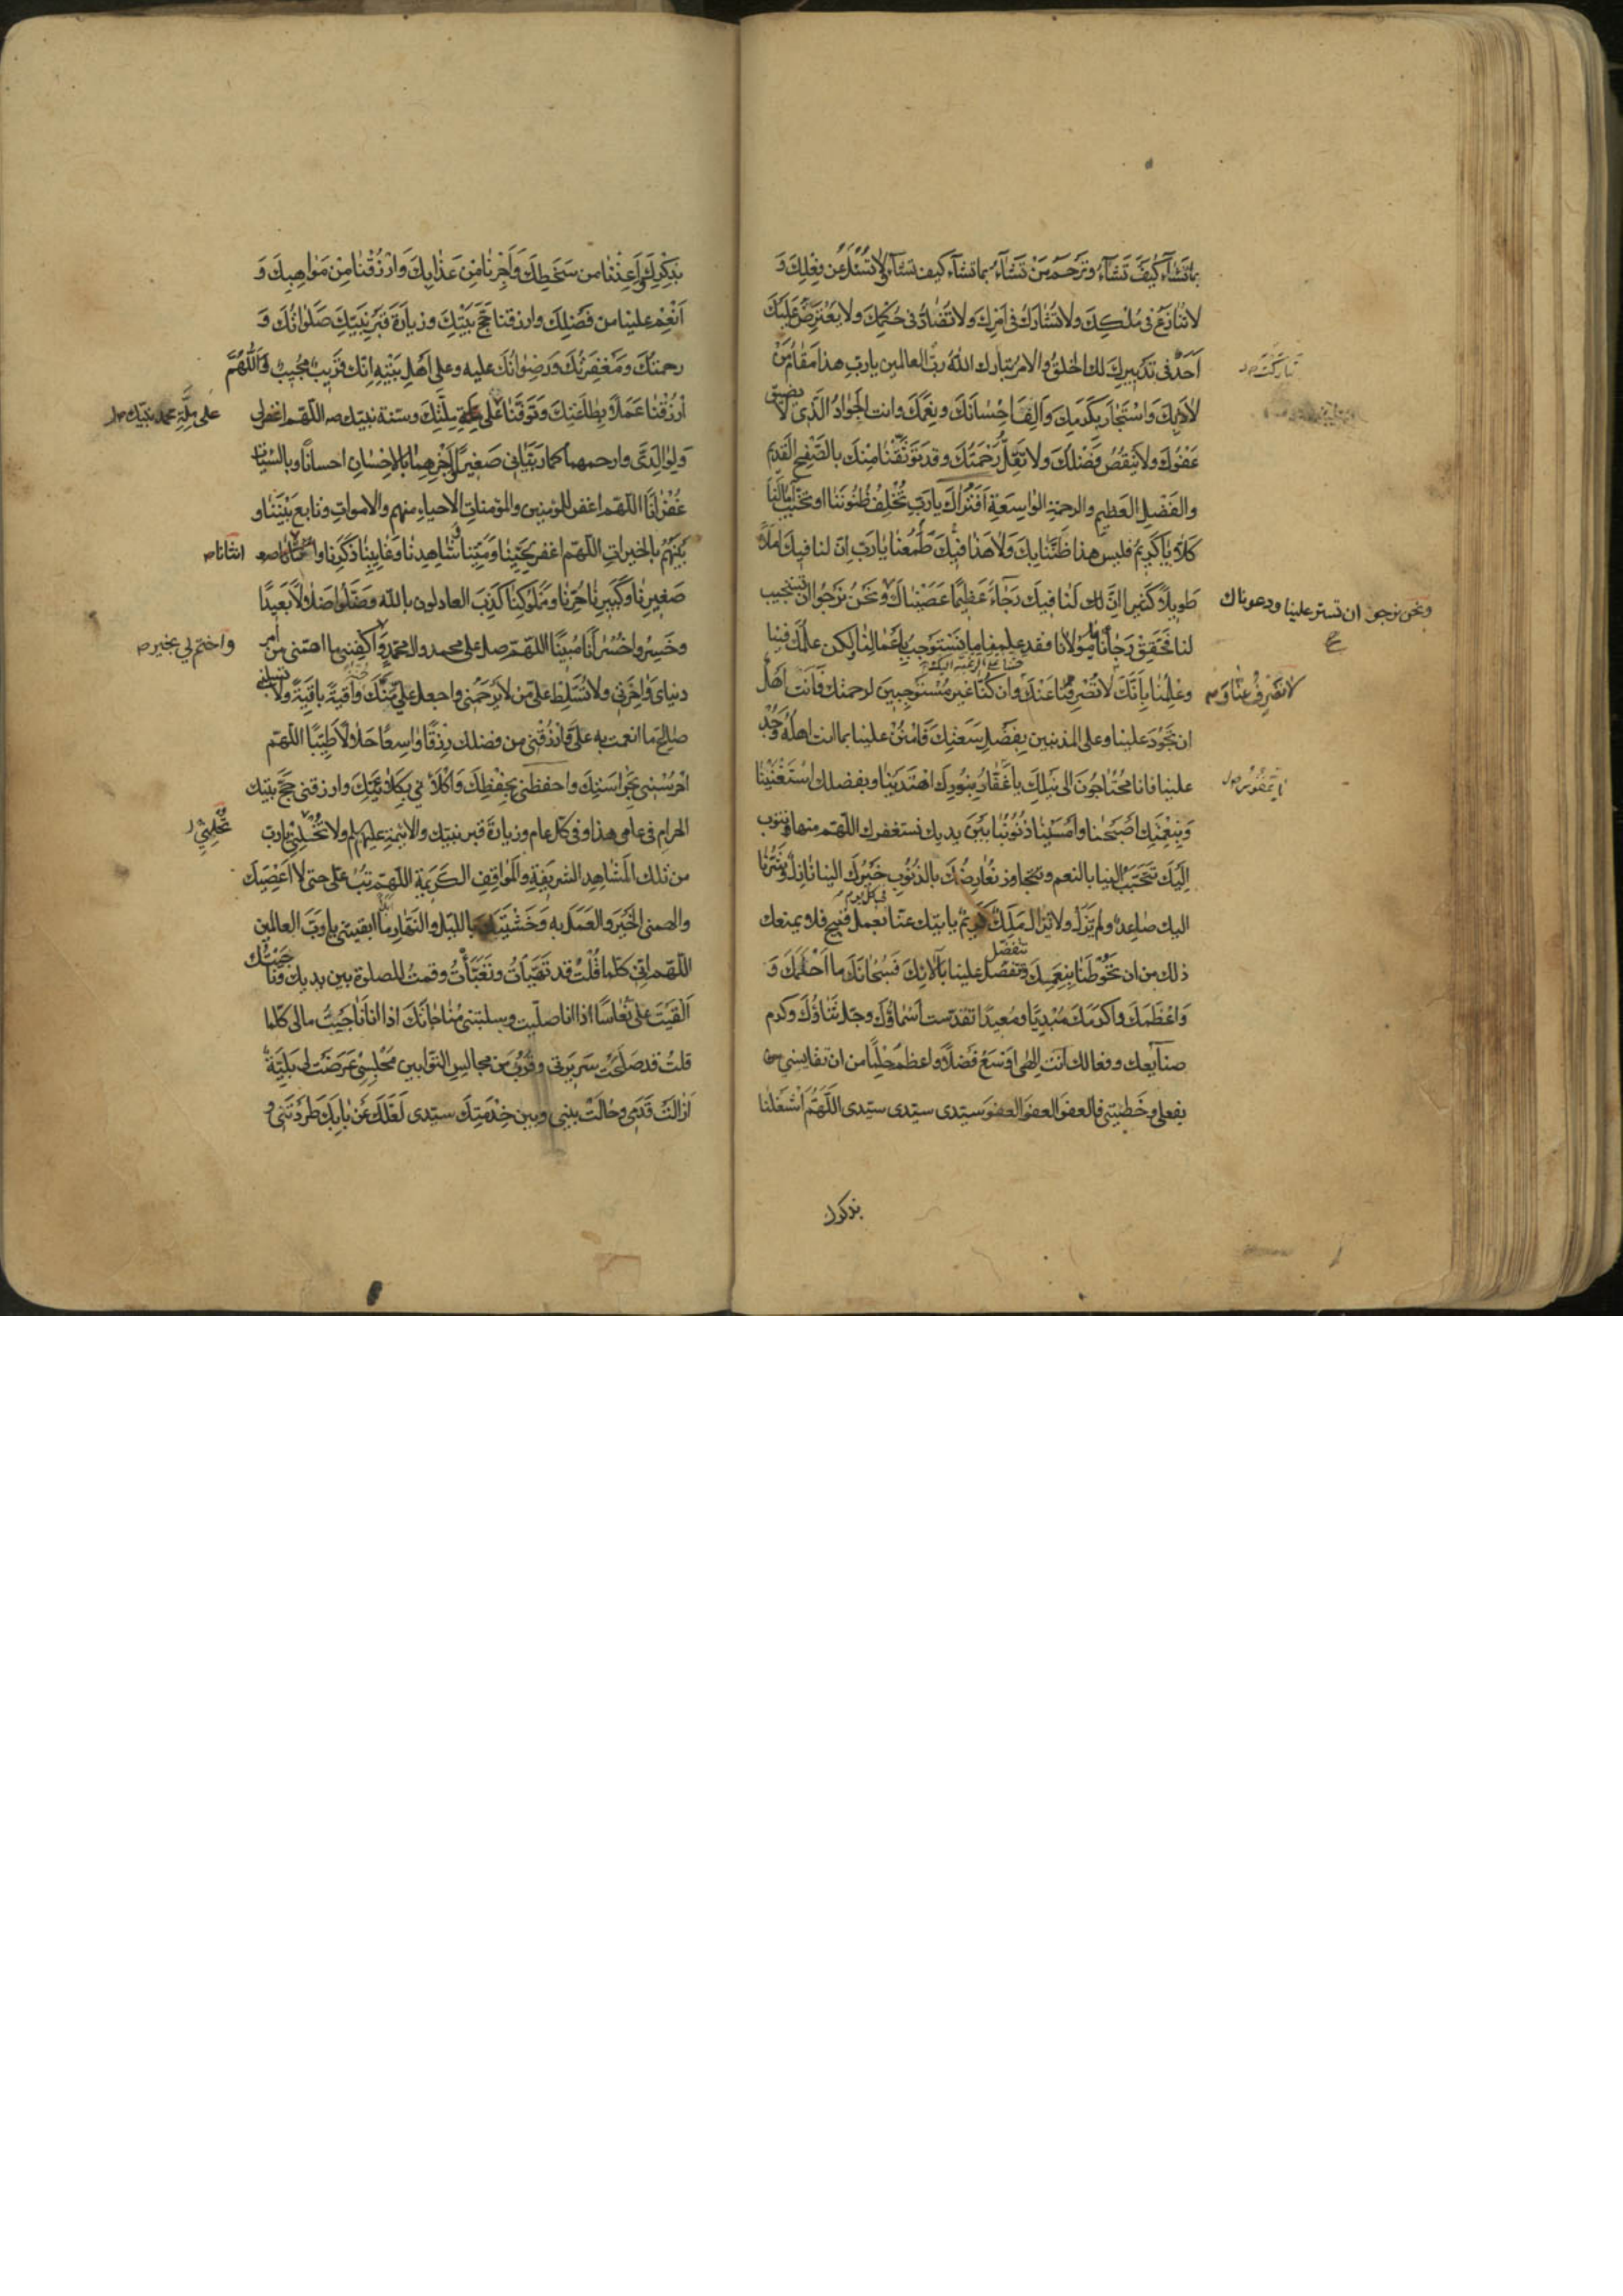 بماتشاء كيف تشاء وترحم من تشاء بماتشاء كيف تشاء ولا تسئل عن فعلك و
لا تنازع في ملكك ولا تشارك في امرك ولا تضاد في حكمك ولا يعترض عليك
احد في تدبيرك لك الخلق والامر تبارك الله رب العالمين يارب هذا مقام من
تباركت
لاذ بك واستجار بكرمك والف احسانك ونعمك وانت الجواد الذي لا يضيق
عفوك ولا ينقص فضلك ولا تقل رحمتك وقد توثقنا منك بالصفح القديم
والفضل العظيم والرحمة الواسعة افتراك يارب تخلف ظنوننا او تخيب امالنا
كلا يا كريم فليس هذا ظننا بك ولا هذا فيك طمعنا يارب ان لنا فيك املا
طويلا كثيرا ان لنا فيك رجاء عظيما عصيناك ونحن نرجوا ان تستجيب
ونحن نرجو ان تستر علينا ودعوناك
لنا فحقق رجائنا مولانا فقد علمنا ما نستوجب باعمالنا ولكن علمك فينا
وعلمنا بانك لا تصرفنا عنك وان كنا غير مستوجبين لرحمتك فانت اهل
لا تصرف عنا
ان تجود علينا وعلى المذنبين بفضل سعتك فامنن علينا بما انت اهله وجد
علينا فانا محتاجون الى نيلك ياغفار بنورك اهتدينا وبفضلك استغنينا
وبنعمتك اصبحنا وامسينا ذنوبنا بين يديك نستغفرك اللهم منها ونتوب
اليك تتحبب الينا بالنعم ونتعارضك بالذنوب خيرك الينا نازل وشرنا
اليك صاعد ولم يزل ولا يزال ملك كريم ياتيك عنا بعمل قبيح فلا يمنعك
في كل يوم
ذلك من ان تحوطنا بنعمك وتتفضل علينا بآلائك فسبحانك ما احلمك و
تتفضل
واعظمك واكرمك مبديا ومعيدا تقدست اسماؤك وجل ثناؤك وكرم
صنايعك وفعالك انت الهي اوسع فضلا واعظم حلما من ان تقايسني
بفعلي وخطيئتي فالعفو العفو العفو سيدي سيدي سيدي اللهم اشغلنا
بذكرك
بذكرك واعذنا من سخطك واجرنا من عذابك وارزقنا من مواهبك و
انعم علينا من فضلك وارزقنا حج بيتك وزيارة قبر نبيك صلواتك و
رحمتك ومغفرتك ورضوانك عليه وعلى اهل بيته انك قريب مجيب اللهم
ارزقنا عملا بطاعتك وتوفنا على ملتك وسنة نبيك اللهم اغفر لي
على ملة محمد نبيك
ولوالدي وارحمهما كما ربياني صغيرا اجزهما بالاحسان احسانا وبالسيئات
غفرانا اللهم اغفر للمؤمنين والمؤمنات الاحياء منهم والاموات وتابع بيننا و
بينهم بالخيرات اللهم اغفر لحينا وميتنا شاهدنا وغايبنا ذكرنا و
انثانا
صغيرنا وكبيرنا حرنا ومملوكنا كذب العادلون بالله وضلوا ضلالا بعيدا
وخسروا خسرانا مبينا اللهم صل على محمد وال محمد واكفني ما اهمني من امر
واختم لي بخير
دنياي واخرتي ولا تسلط علي من لا يرحمني واجعل علي منك واقية باقية ولا تسلبني
صالح ما انعمت به علي وارزقني من فضلك رزقا واسعا حلالا طيبا اللهم
احرسني بحراستك واحفظني بحفظك واكلأني بكلائتك وارزقني حج بيتك
الحرام في عامي هذا وفي كل عام وزيارة قبر نبيك والائمة عليهم ولا تخلني يارب
تخلني
من تلك المشاهد الشريفة والمواقف الكريمة اللهم تب علي حتى لا اعصيك
والهمني الخير والعمل به وخشيتك بالليل والنهار ما ابقيتني يا رب العالمين
اللهم اني كلما قلت قد تهيأت وتعبأت وقمت للصلوة بين يديك وناجيتك
القيت علي نعاسا اذا انا صليت وسلبتني مناجاتك اذا انا ناجيت مالي كلما
قلت قد صلحت سريرتي وقرب من مجالس التوابين مجلسي عرضت لي بلية
ازالت قدمي وحالت بيني وبين خدمتك سيدي لعلك عن بابك طردتني و